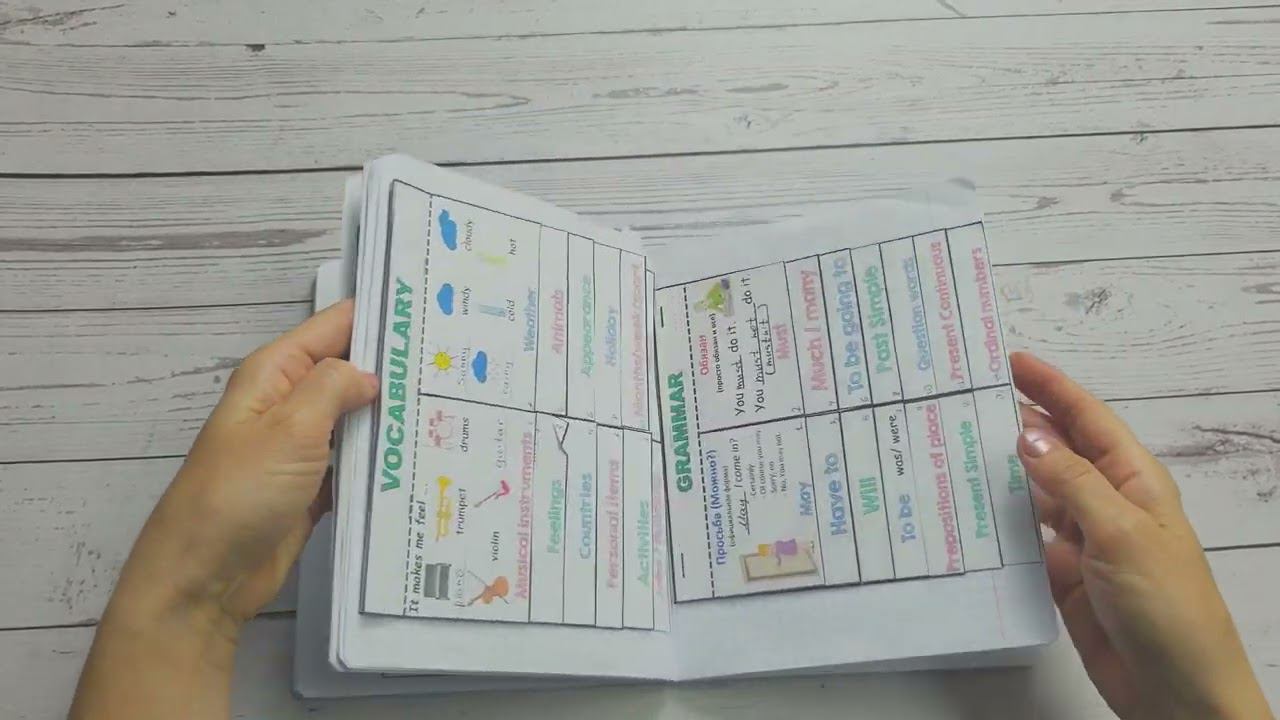 VOCABULARY
It makes me feel ...
piano trumpet drums
violin guitar
Musical instruments
Feelings
Countries
Personal items
Activities
sunny windy cloudy
cold hot
Weather
Animals
Appearance
Holiday
GRAMMAR
Просьба (Можно?)
(официальная форма)
May I come in?
- Certainly
- Of course you may.
- Sorry, no
- No, You may not.
May
Have to
Will
To be was/ were
Prepositions of place
Present Simple
Time
Обязан
You must do it.
You must not do it.
(mustn't)
Must
Much / many
To be going to
Past Simple
Question words
Present Continuous
Ordinal numbers